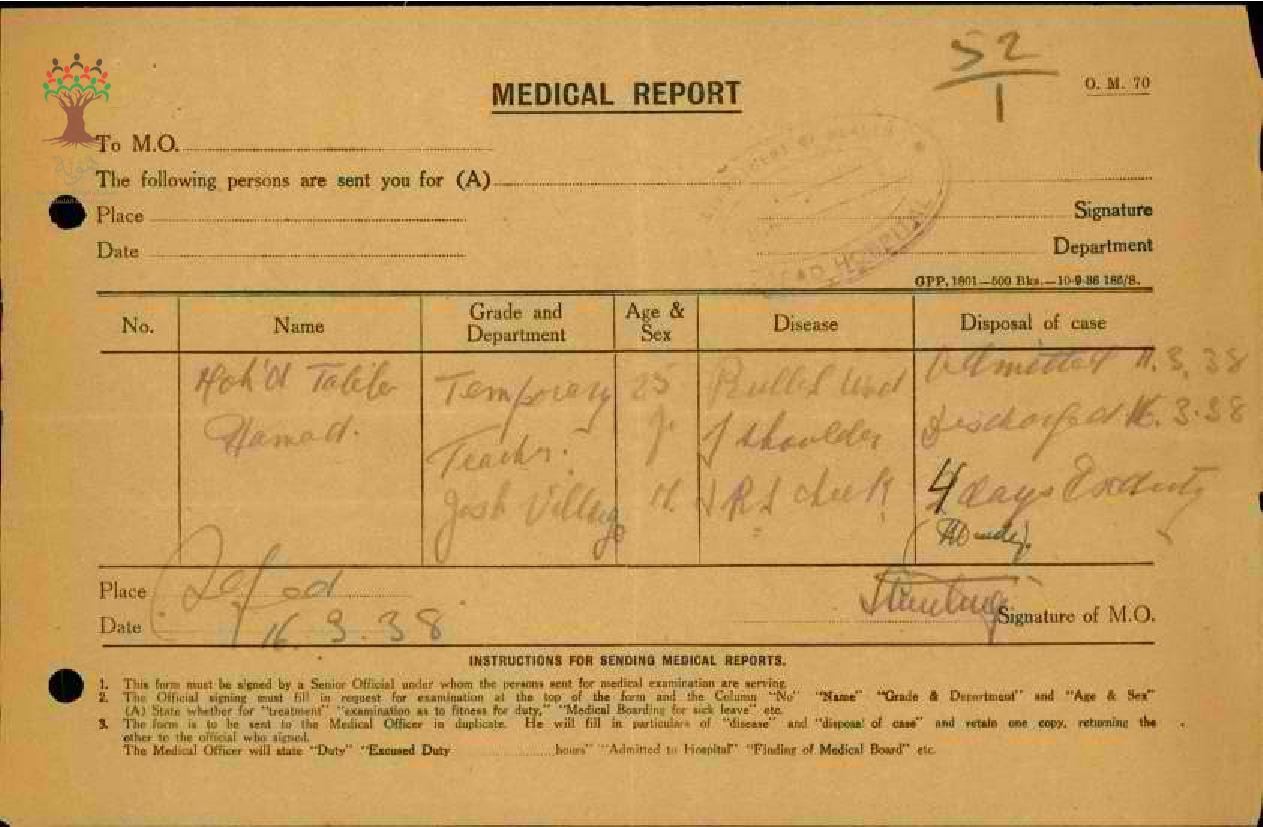 52
1
O. M. 70
MEDICAL REPORT
To M.O.
The following persons are sent you for (A)
Place
Signature
Date
Department
HOSPITAL
GPP, 1801—500 Bks.—10-9-36 186/8.
No. Name Grade and Department Age & Sex Disease Disposal of case
Moh'd Taleb Temporary 25 Bullet Admitted 11.3.38
Hamad. Teacher. shoulder Discharged 16.3.38
Village M. cheek 4 days
Place Safad
Date 16.3.38
Signature of M.O.
INSTRUCTIONS FOR SENDING MEDICAL REPORTS.
1. This form must be signed by a Senior Official under whom the persons sent for medical examination are serving
2. The Official signing must fill in request for examination at the top of the form and the Column "No" "Name" "Grade & Department" and "Age & Sex"
(A) State whether for "treatment" "examination as to fitness for duty," "Medical Boarding for sick leave" etc.
3. The form is to be sent to the Medical Officer in duplicate. He will fill in particulars of "disease" and "disposal of case" and retain one copy, returning the
other to the official who signed.
The Medical Officer will state "Duty" "Excused Duty ............hours" "Admitted to Hospital" "Finding of Medical Board" etc.